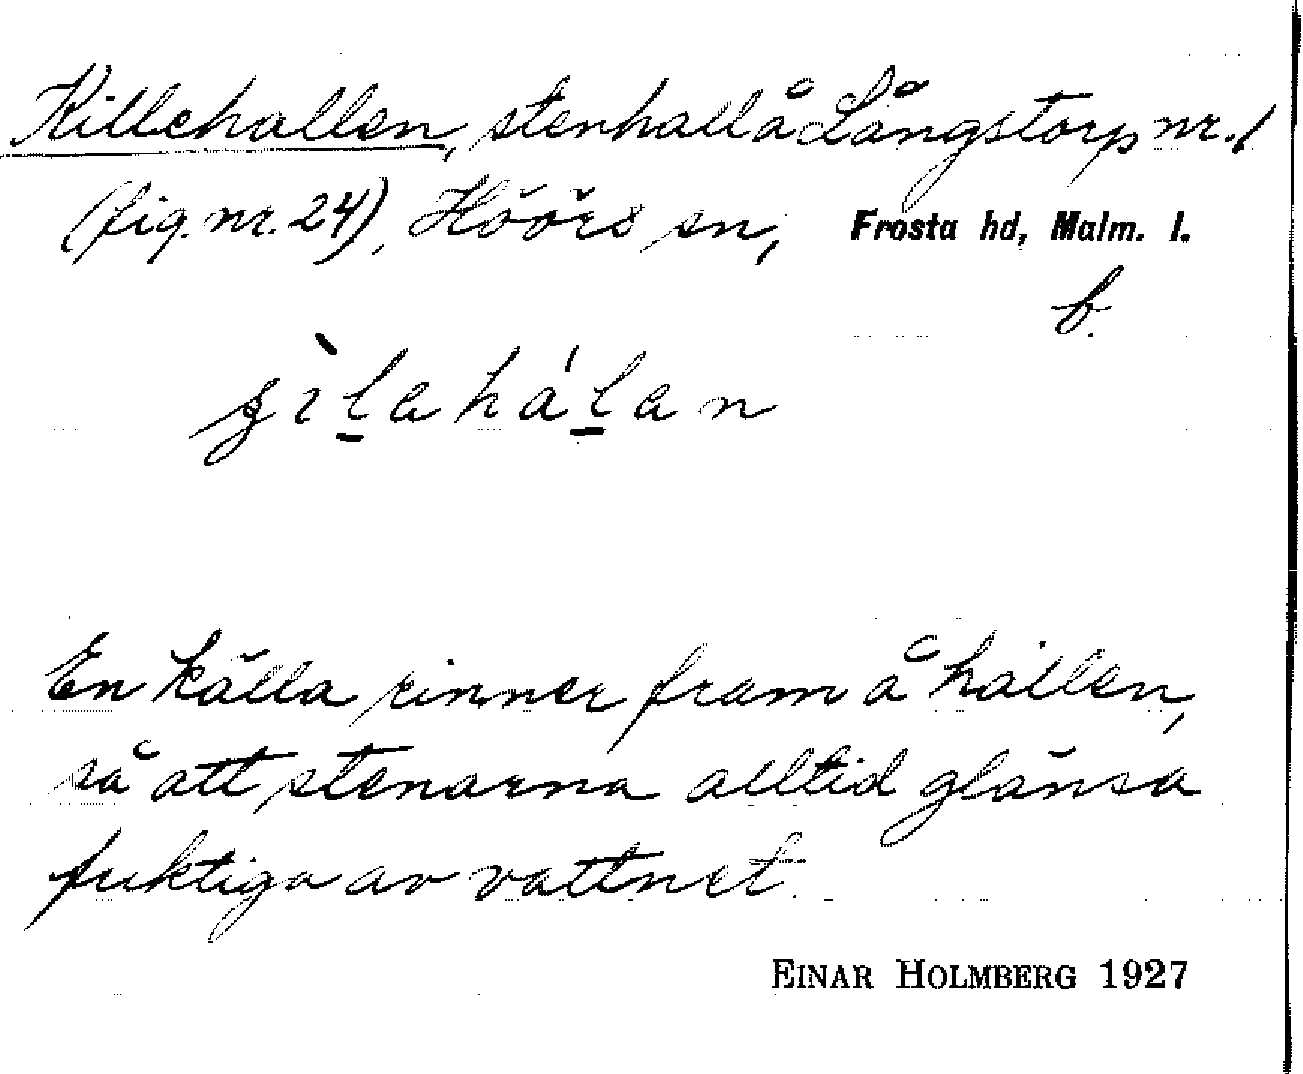 Killehallen, stenhall å Långstorp nr. 1
(fig. nr. 24), Höörs sn, Frosta hd, Malm. l.
b.
En källa rinner fram å hällen,
så att stenarna alltid glänsa
fuktiga av vattnet.
EINAR HOLMBERG 1927